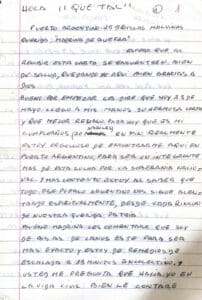 HOLA "QUE TAL" 1
PUERTO ARGENTINO - ISLAS MALVINAS
QUERIDA "MADRINA DE GUERRA"
ESPERO QUE AL
RECIBIR ESTA CARTA, SE ENCUENTREN BIEN
DE SALUD, QUEDANDO YO AQUI BIEN GRACIAS A
DIOS
BUENO PARA EMPEZAR LES DIRE QUE HOY 23 DE
MAYO, LLEGO A MIS MANOS SU CARTA
Y QUE MEJOR REGALO PARA HOY QUE ES MI
CUMPLEAÑOS
ESTOY ORGULLOSO DE ENCONTRARME AQUI EN
PUERTO ARGENTINO, PARA SER UN INTEGRANTE
MAS DE ESTA LUCHA POR LA SOBERANIA NACIO
NAL Y MAS CONTENTO ESTOY AL SABER QUE
TODO ESE PUEBLO ARGENTINO NOS SIGUE ALEN
TANDO ESPIRITUALMENTE, DESDE CADA RINCON
DE NUESTRA QUERIDA PATRIA.
BUENO MADRINA LES COMENTARE QUE SOY
DE BS. AS. DE LANUS ESTE PARA SER
MAS EXACTO Y ESTOY DE REMEDIOS DE
ESCALADA A 15 MINUTOS
USTED ME PREGUNTA QUE HACIA YO EN
LA VIDA CIVIL BIEN LE CONTARE